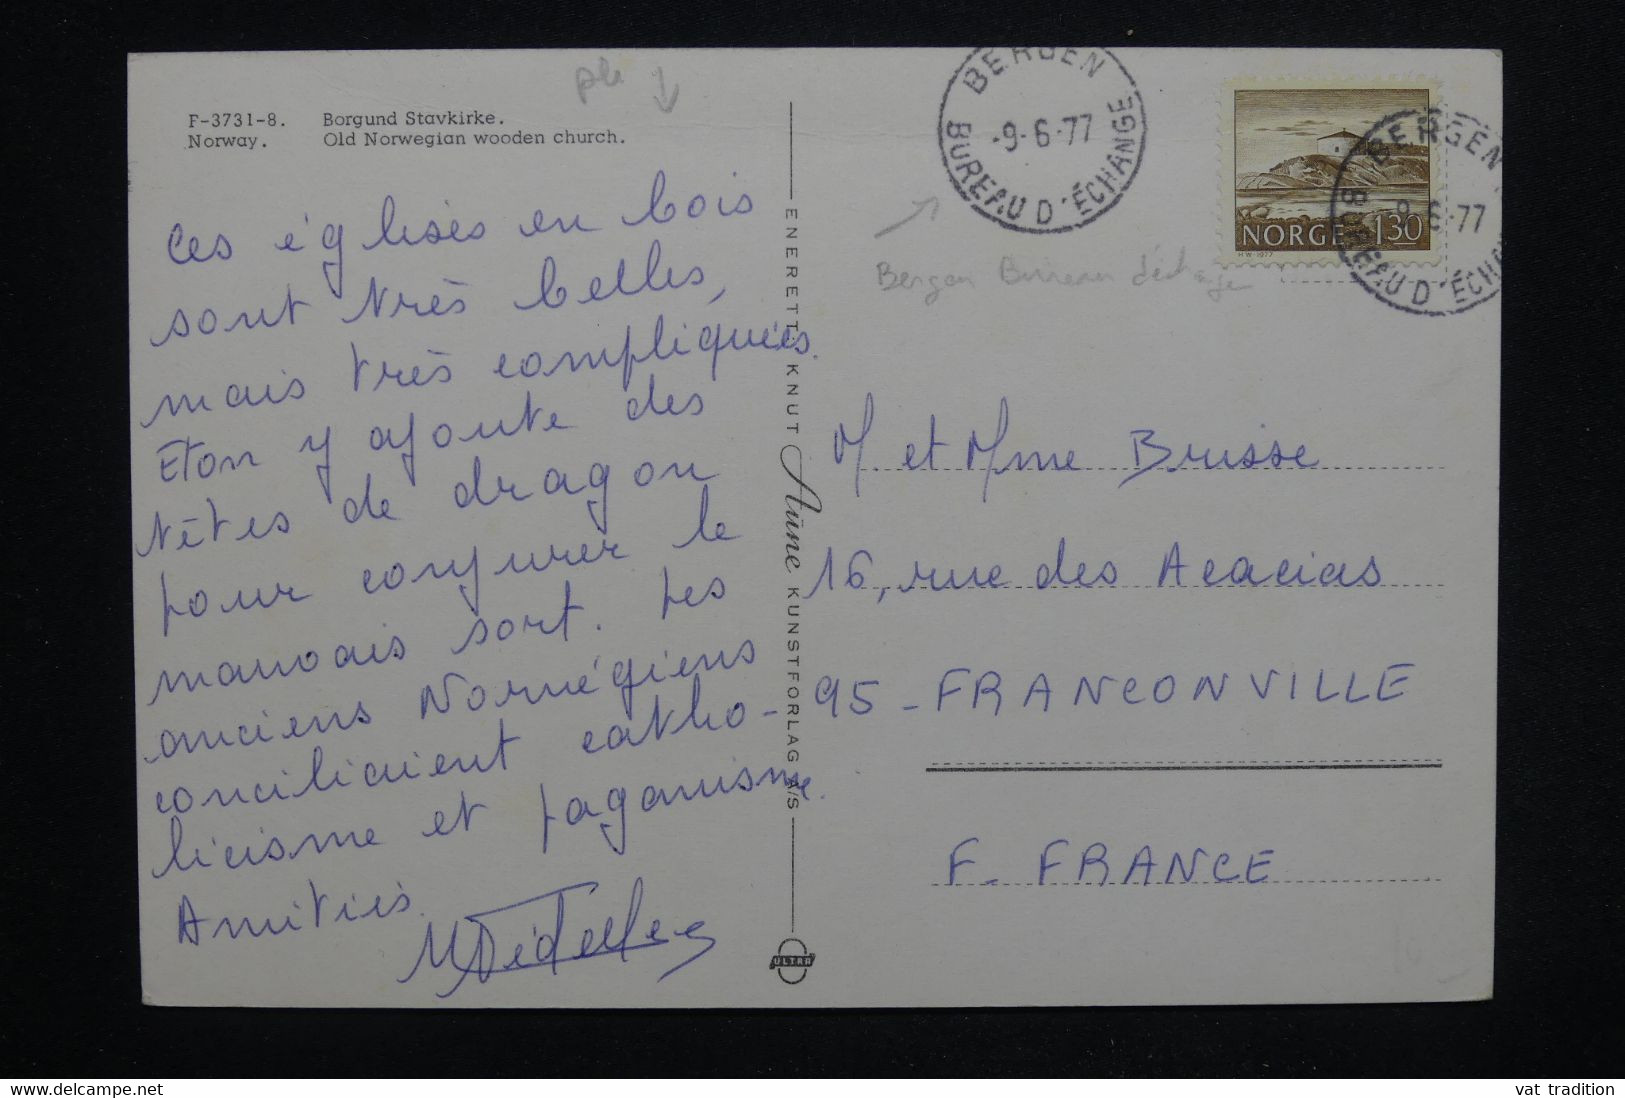 F-3731-8. Borgund Stavkirke.
Norway. Old Norwegian wooden church.
Ces églises en bois
sont très belles,
mais très compliquées.
Et on y ajoute des
têtes de dragon
pour conjurer le
mauvais sort. Les
anciens Norvégiens
conciliaient catho-
licisme et paganisme.
Amitiés.
ENERETT: KNUT Aune KUNSTFORLAG A/S
ULTRA
BERGEN
-9-6-77
BUREAU D'ÉCHANGE
Bergen Bureau d'échange
NORGE 130
H W - 1977
BERGEN
-9-6-77
BUREAU D'ÉCHA
M. et Mme Brisse
16, rue des Acacias
95 - FRANCONVILLE
F. FRANCE
www.delcampe.net
vat tradition